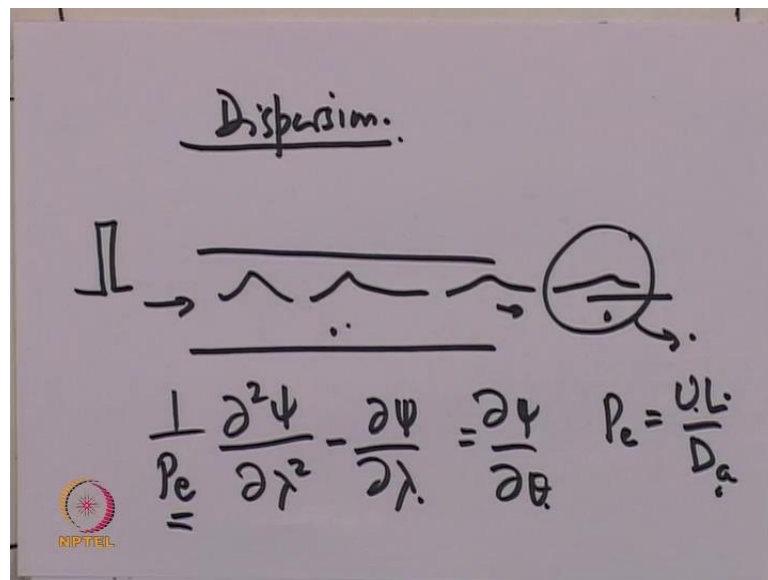 Dispersion.
1/Pe ∂²ψ/∂λ² - ∂ψ/∂λ. = ∂ψ/∂θ. Pe = U.L./Da
NPTEL